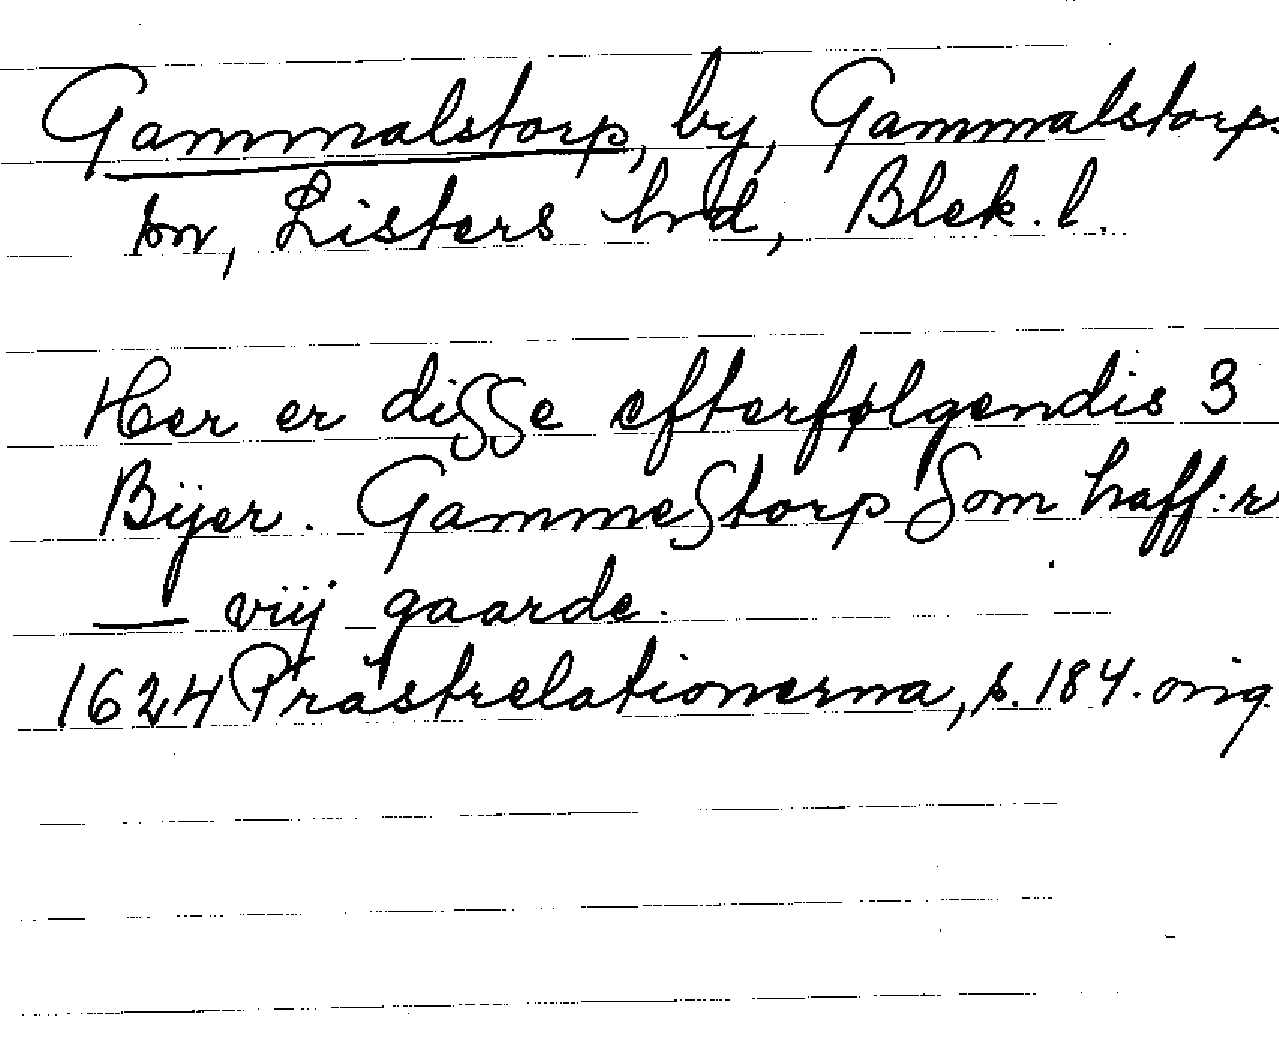 Gammalstorp, by, Gammalstorps
sn, Listers hrd, Blek. l.
Her er disse efterfølgendis 3
Bÿer. Gammestorp Som haff:r
— vıÿ gaarde.
1624 Prästrelationerna, s. 184. orig.